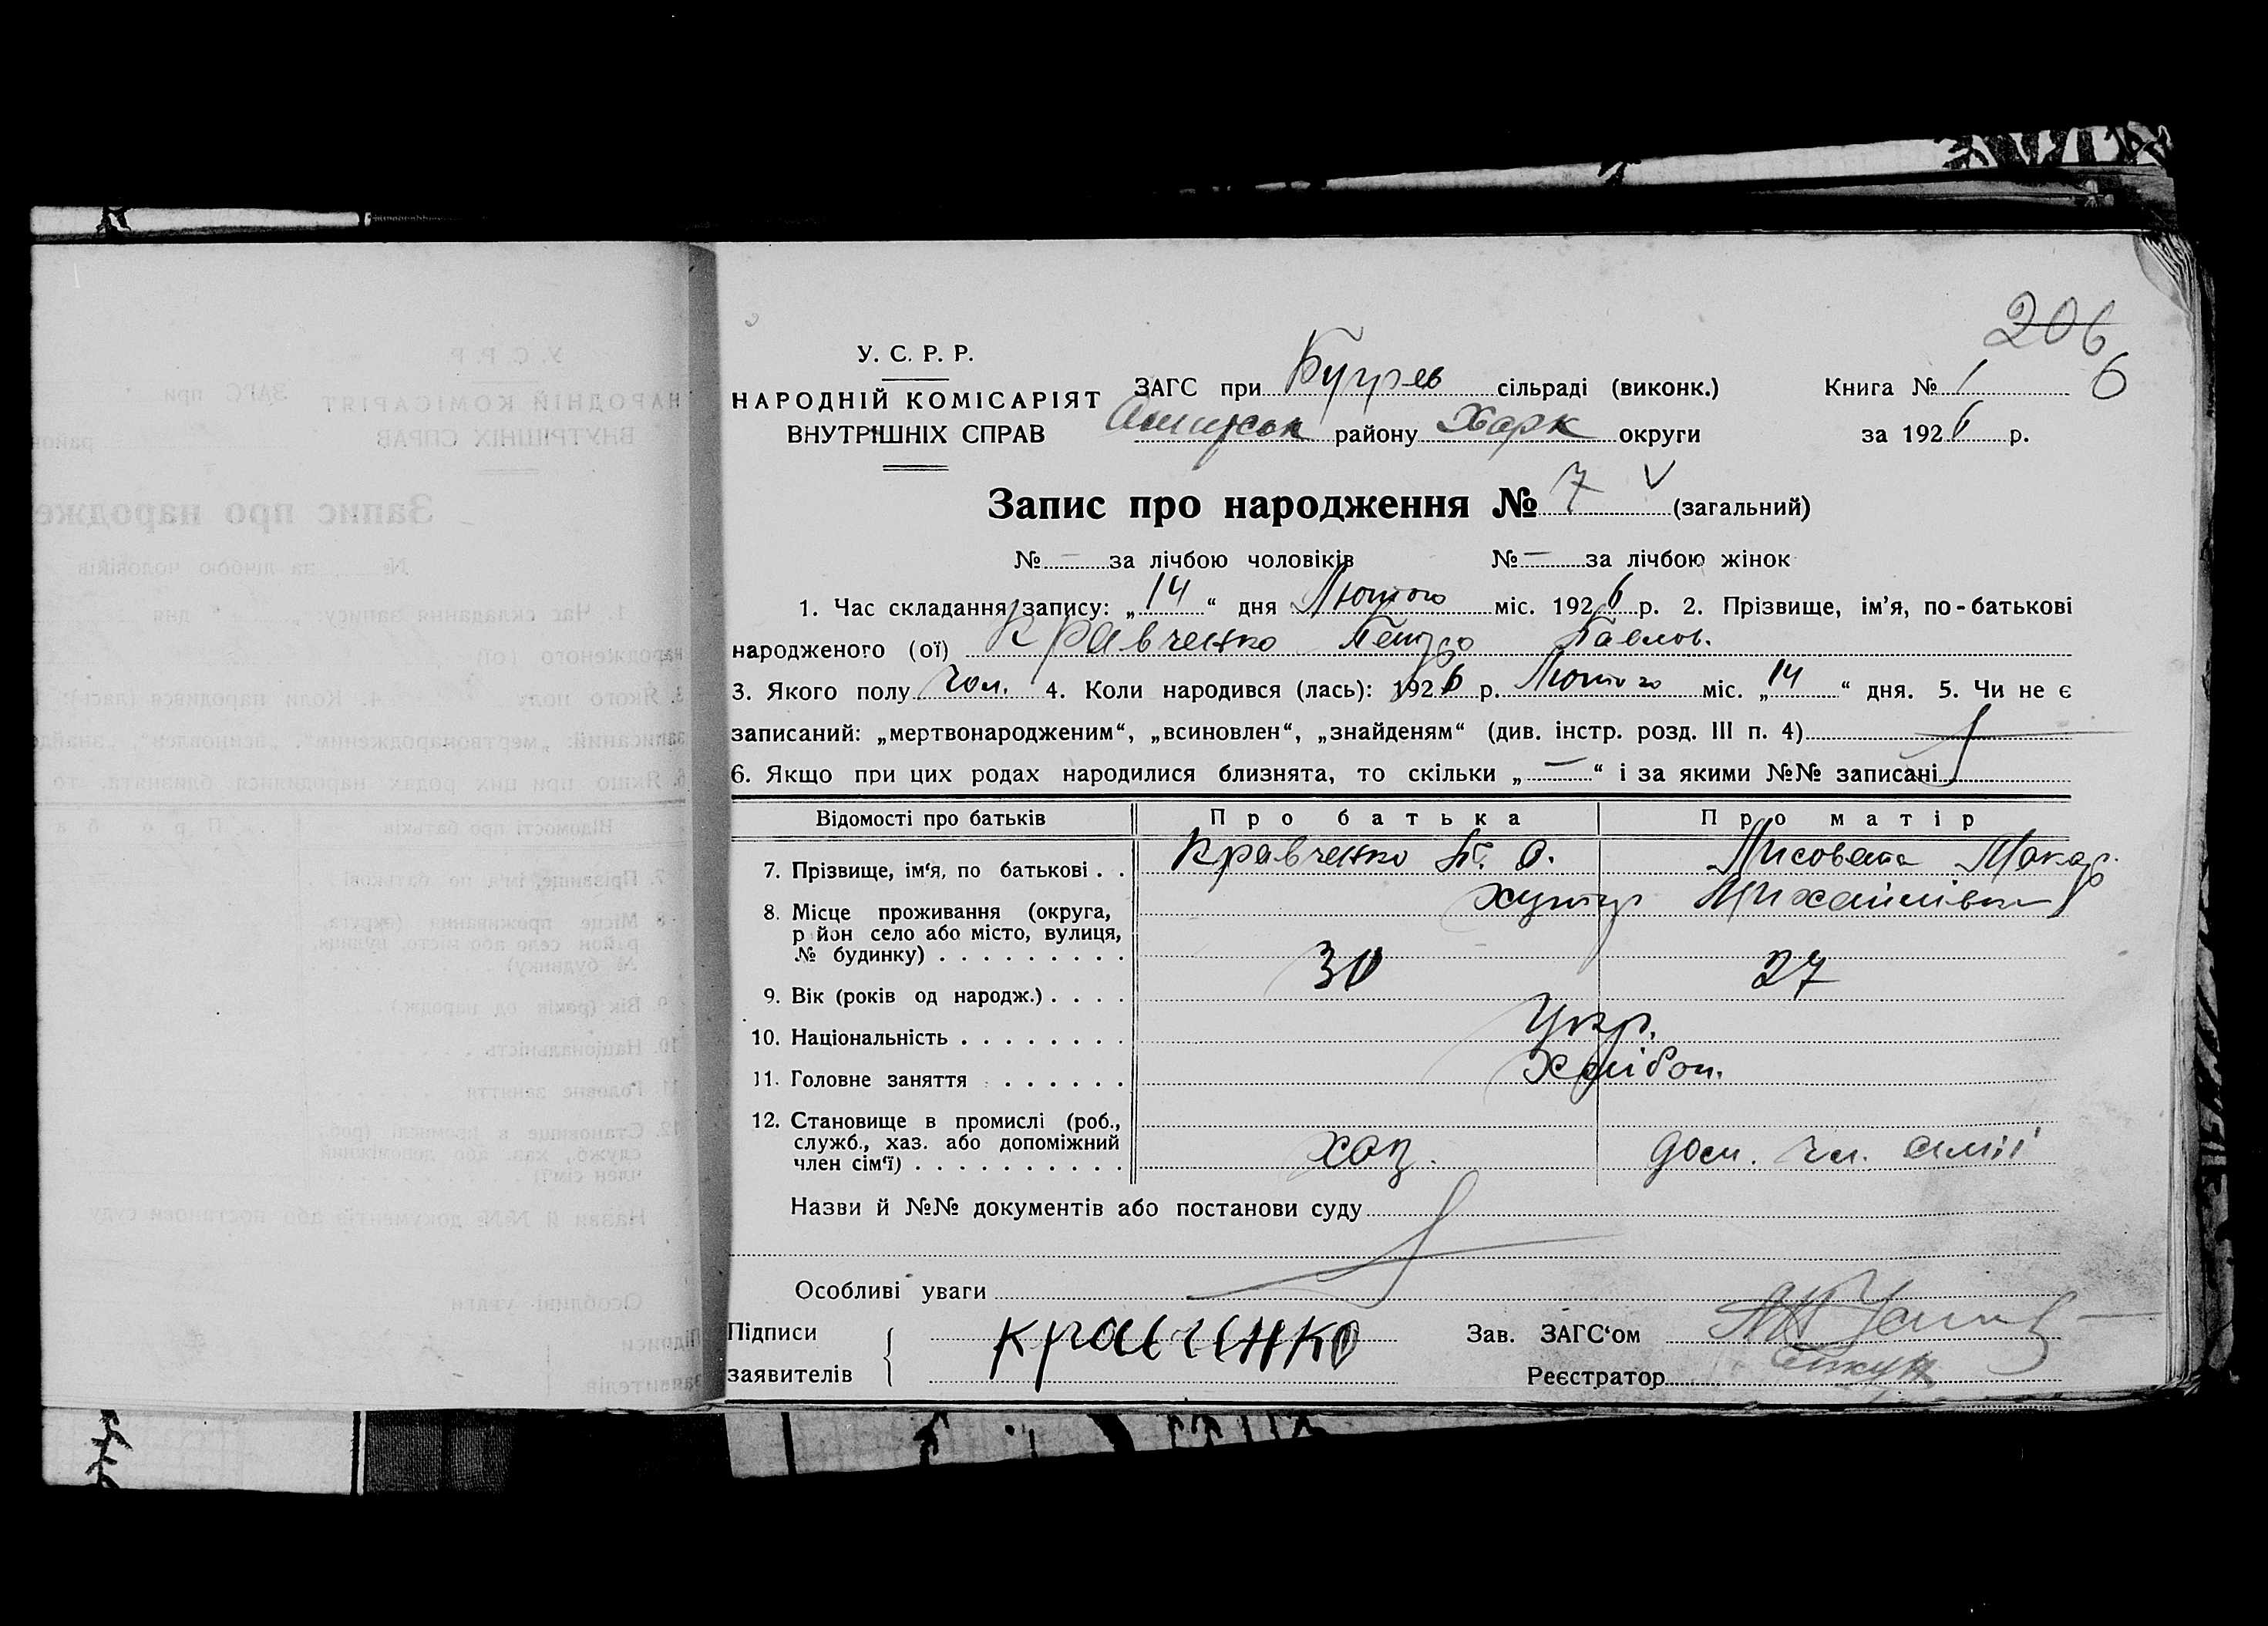 206
6
У. С. Р. Р.
НАРОДНІЙ КОМІСАРІЯТ
ВНУТРІШНІХ СПРАВ
ЗАГС при сільраді (виконк.)
району Харк округи
Книга № 1
за 1926 р.
Запис про народження № 7 V (загальний)
№ — за лічбою чоловіків № — за лічбою жінок
1. Час складання запису: „14“ дня Лютого міс. 1926 р. 2. Прізвище, ім’я, по-батькові
народженого (ої) Кравченко Петро Павлов.
3. Якого полу Чол. 4. Коли народився (лась): 1926 р. Лютого міс. „14“ дня. 5. Чи не є
записаний: „мертвонародженим“, „всиновлен“, „знайденям“ (див. інстр. розд. III п. 4)
6. Якщо при цих родах народилися близнята, то скільки „—“ і за якими №№ записані
Відомості про батьків Про батька Про матір
7. Прізвище, ім‘я, по батькові . . Кравченко П. О. Лисовата Макар.
8. Місце проживання (округа, хутір Михайлівка
р йон село або місто, вулиця,
№ будинку) . . . . . . . . .
9. Вік (років од народж.) . . . . 30 27
10. Національність . . . . . . . . Укр.
11. Головне заняття . . . . . . . Хлібоп.
12. Становище в промислі (роб.,
служб., хаз. або допоміжний
член сім‘ї) . . . . . . . . . . хаз. доп. чл. сімії
Назви й №№ документів або постанови суду
Особливі уваги
Підписи
заявителів
кравченко
Зав. ЗАГС‘ом
Реєстратор